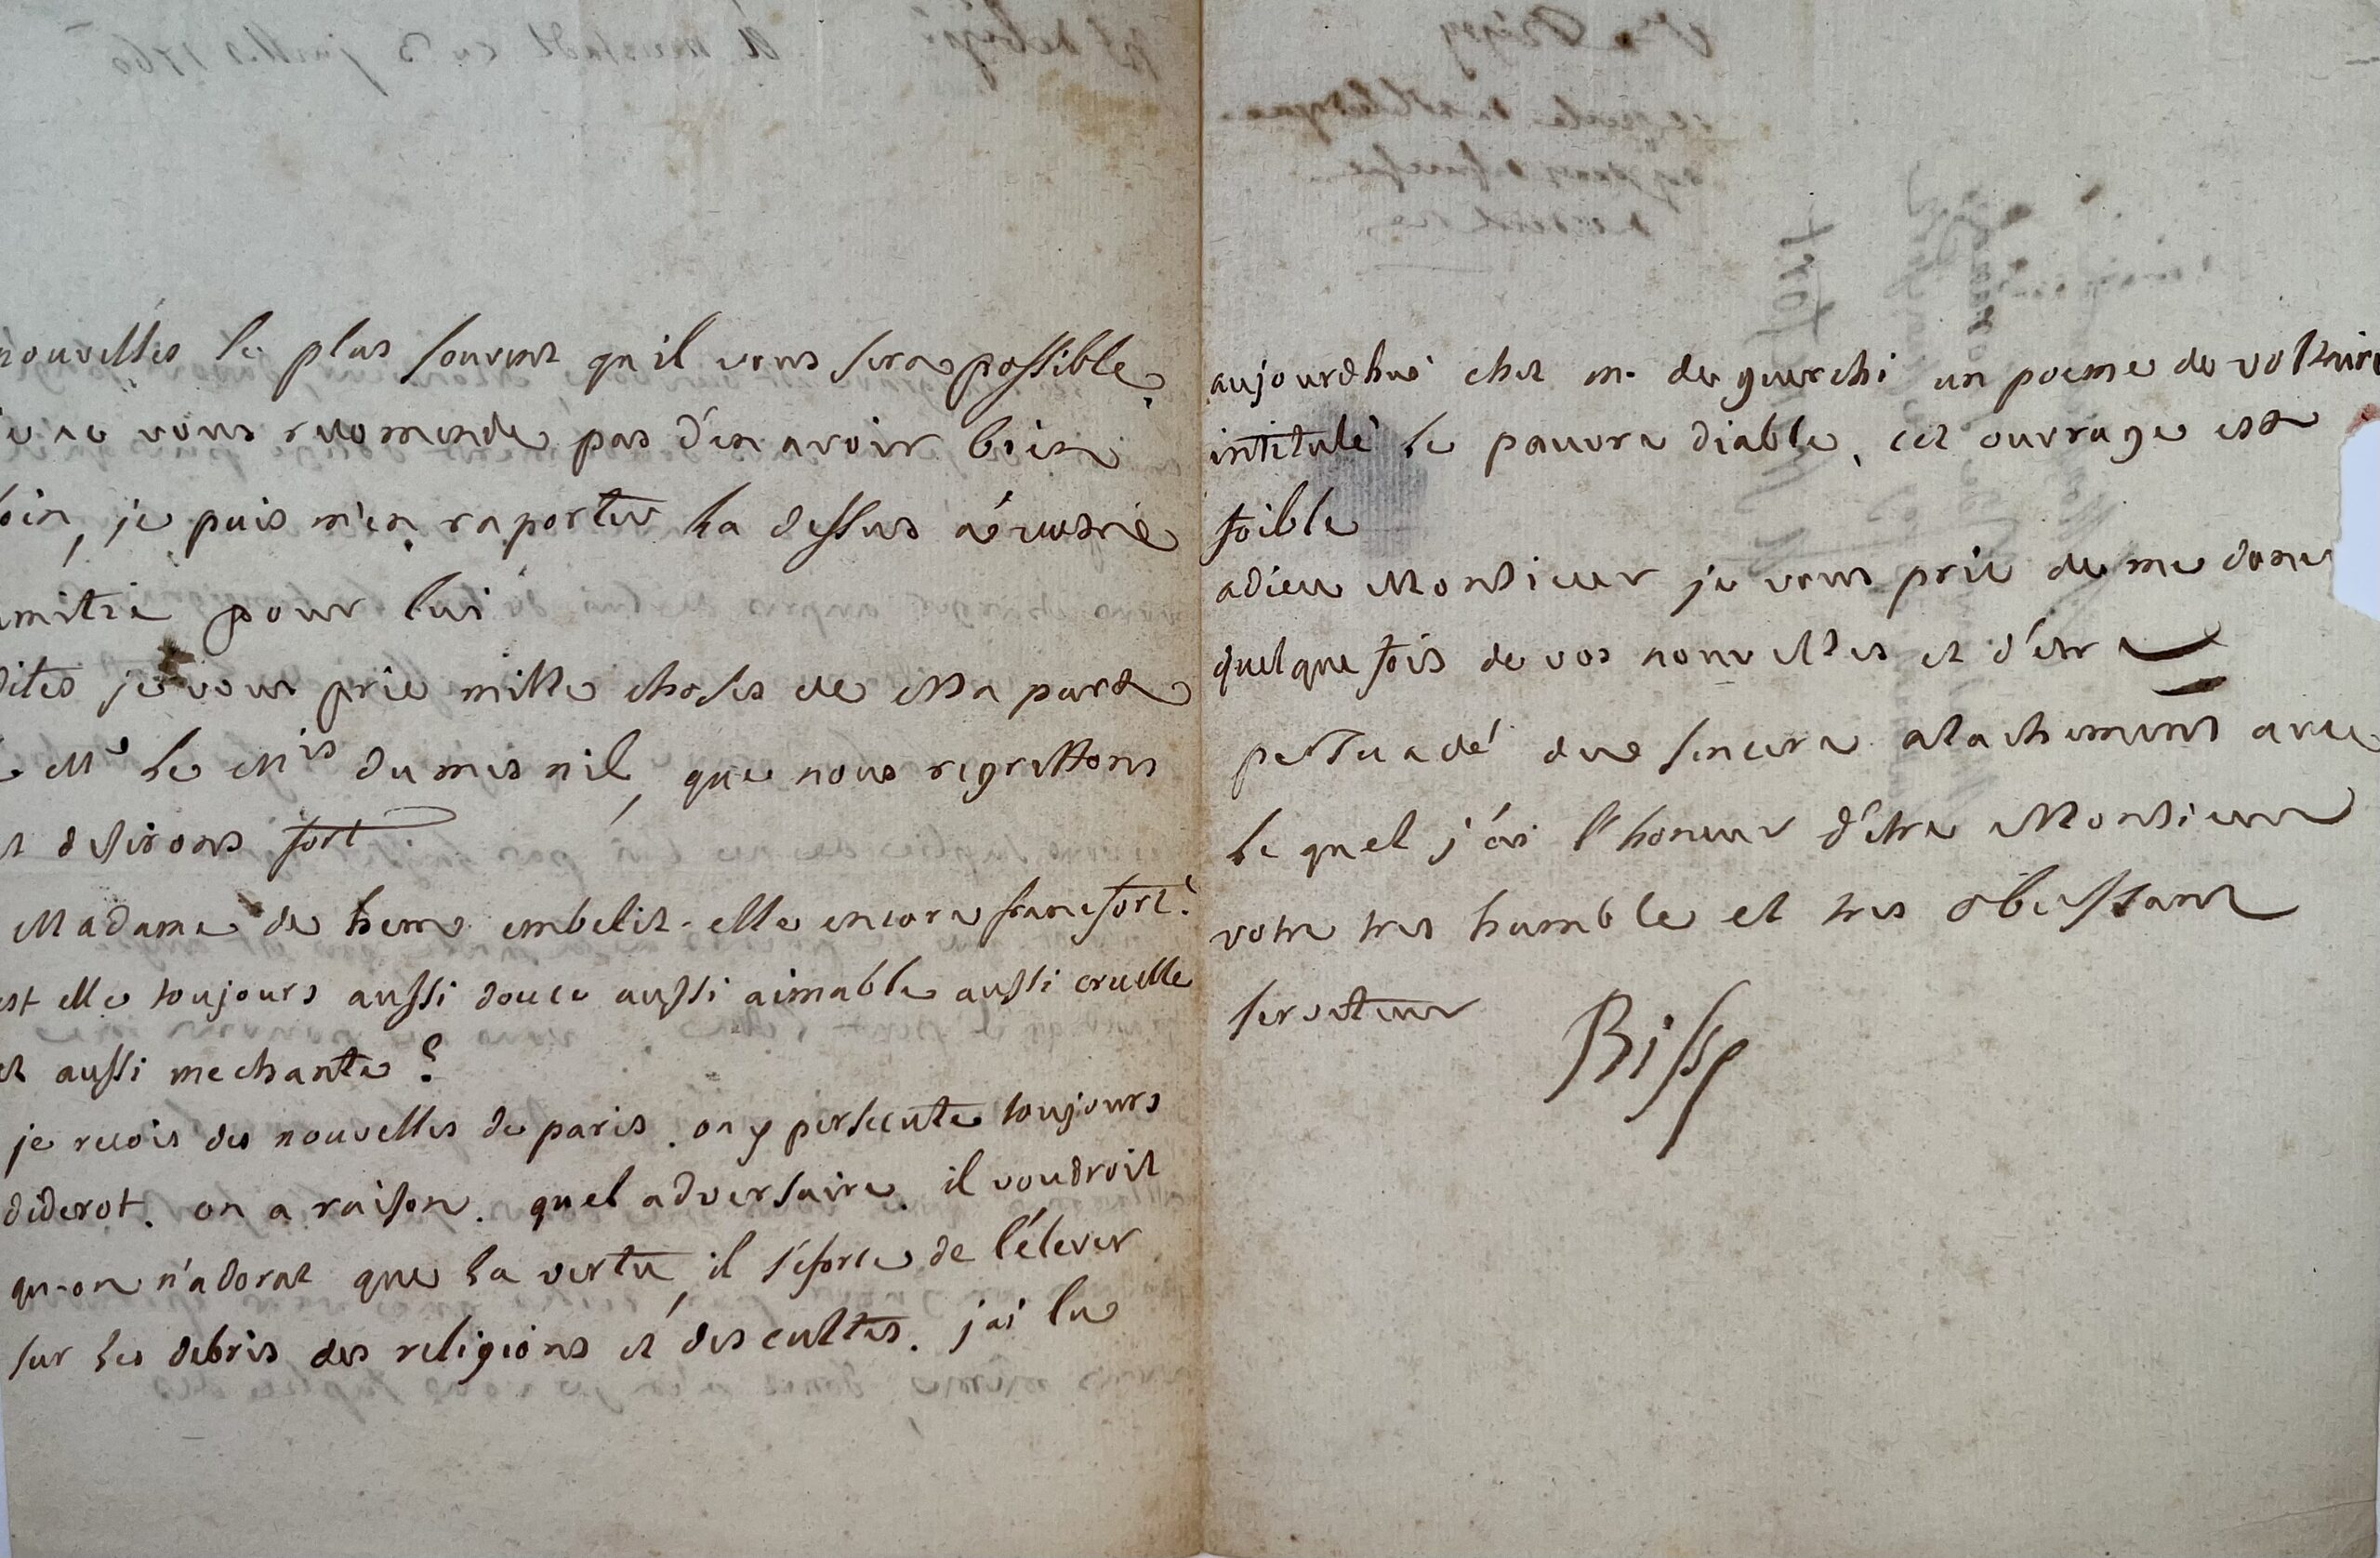 nouvelles le plus souvent qu'il vous sera possible,
je ne vous recomende pas d'en avoir bien
soin, je puis m'en raporter la dessus a votre
amitié pour lui
dites je vous prie mille choses de Ma part
a Mr le Mis dumesnil, que nous regrettons
et desirons fort
Madame de hem embelit-elle encore francfort?
est elle toujours aussi douce aussi aimable aussi cruelle
et aussi mechante?
je recois des nouvelles de paris. on y persecute toujours
diderot. on a raison. quel adversaire. il voudroit
qu-on n'adorat que la vertu, il s'eforce de l'élever
sur les debris des religions et des cultes. j'ai lu
aujourdhui chez m. de guerchi un poeme de voltaire
intitulé le pauvre diable, cet ouvrage est
foible
adieu Monsieur je vous prie de me doner
quelque fois de vos nouvelles et d'etre
persuadé du sincere atachement avec
le quel j'ai l'honeur d'etre Monsieur
votre tres humble et tres obeissant
serviteur Bissy